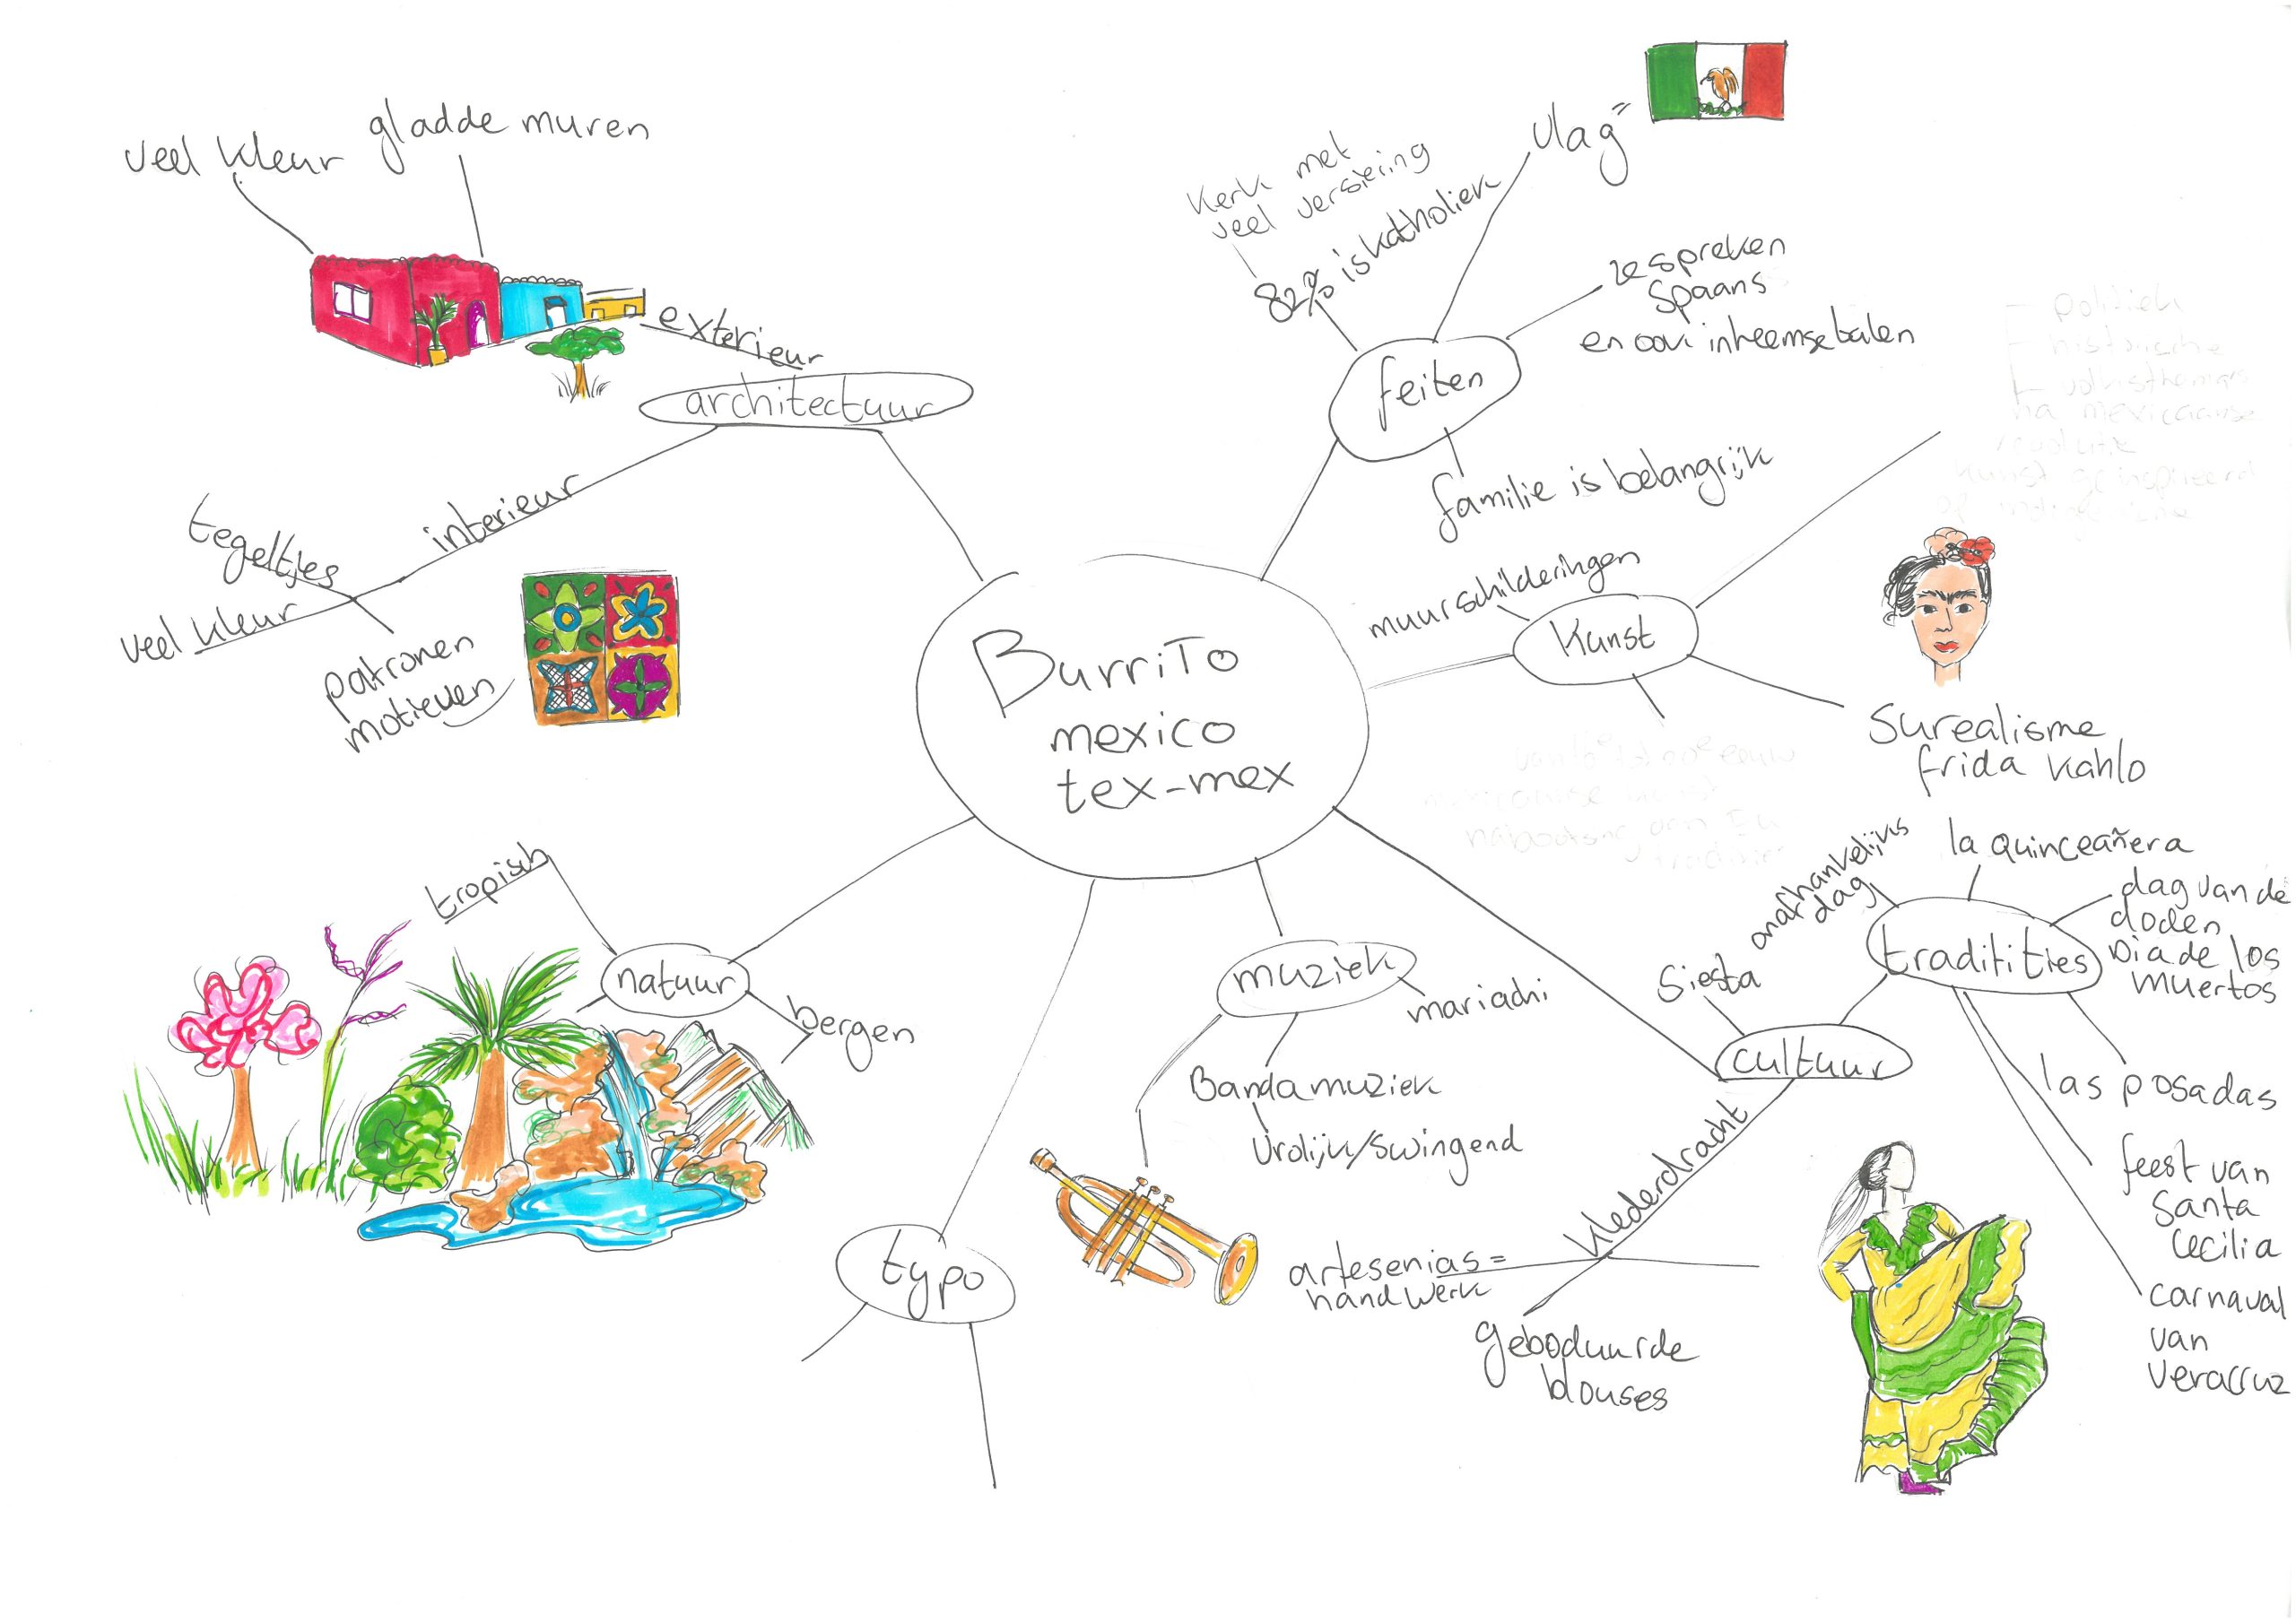 veel kleur
gladde muren
exterieur
architectuur
interieur
tegeltjes
veel kleur
patronen
motieven
vlag =
Kerk met
veel versiering
82% is katholiek
ze spreken
Spaans
en ook inheemse talen
feiten
familie is belangrijk
politiek
historische
na mexicaanse
muurschilderingen
Kunst
Surealisme
frida kahlo
Burrito
mexico
tex-mex
tropisch
natuur
bergen
muziek
mariachi
Banda muziek
Vrolijk/swingend
typo
onafhankelijks
dag
la quinceañera
dag van de
doden
Dia de los
muertos
traditities
Siesta
cultuur
las posadas
feest van
Santa
Cecilia
carnaval
van
Veracruz
klederdracht
artesenias =
handwerk
geborduurde
blouses